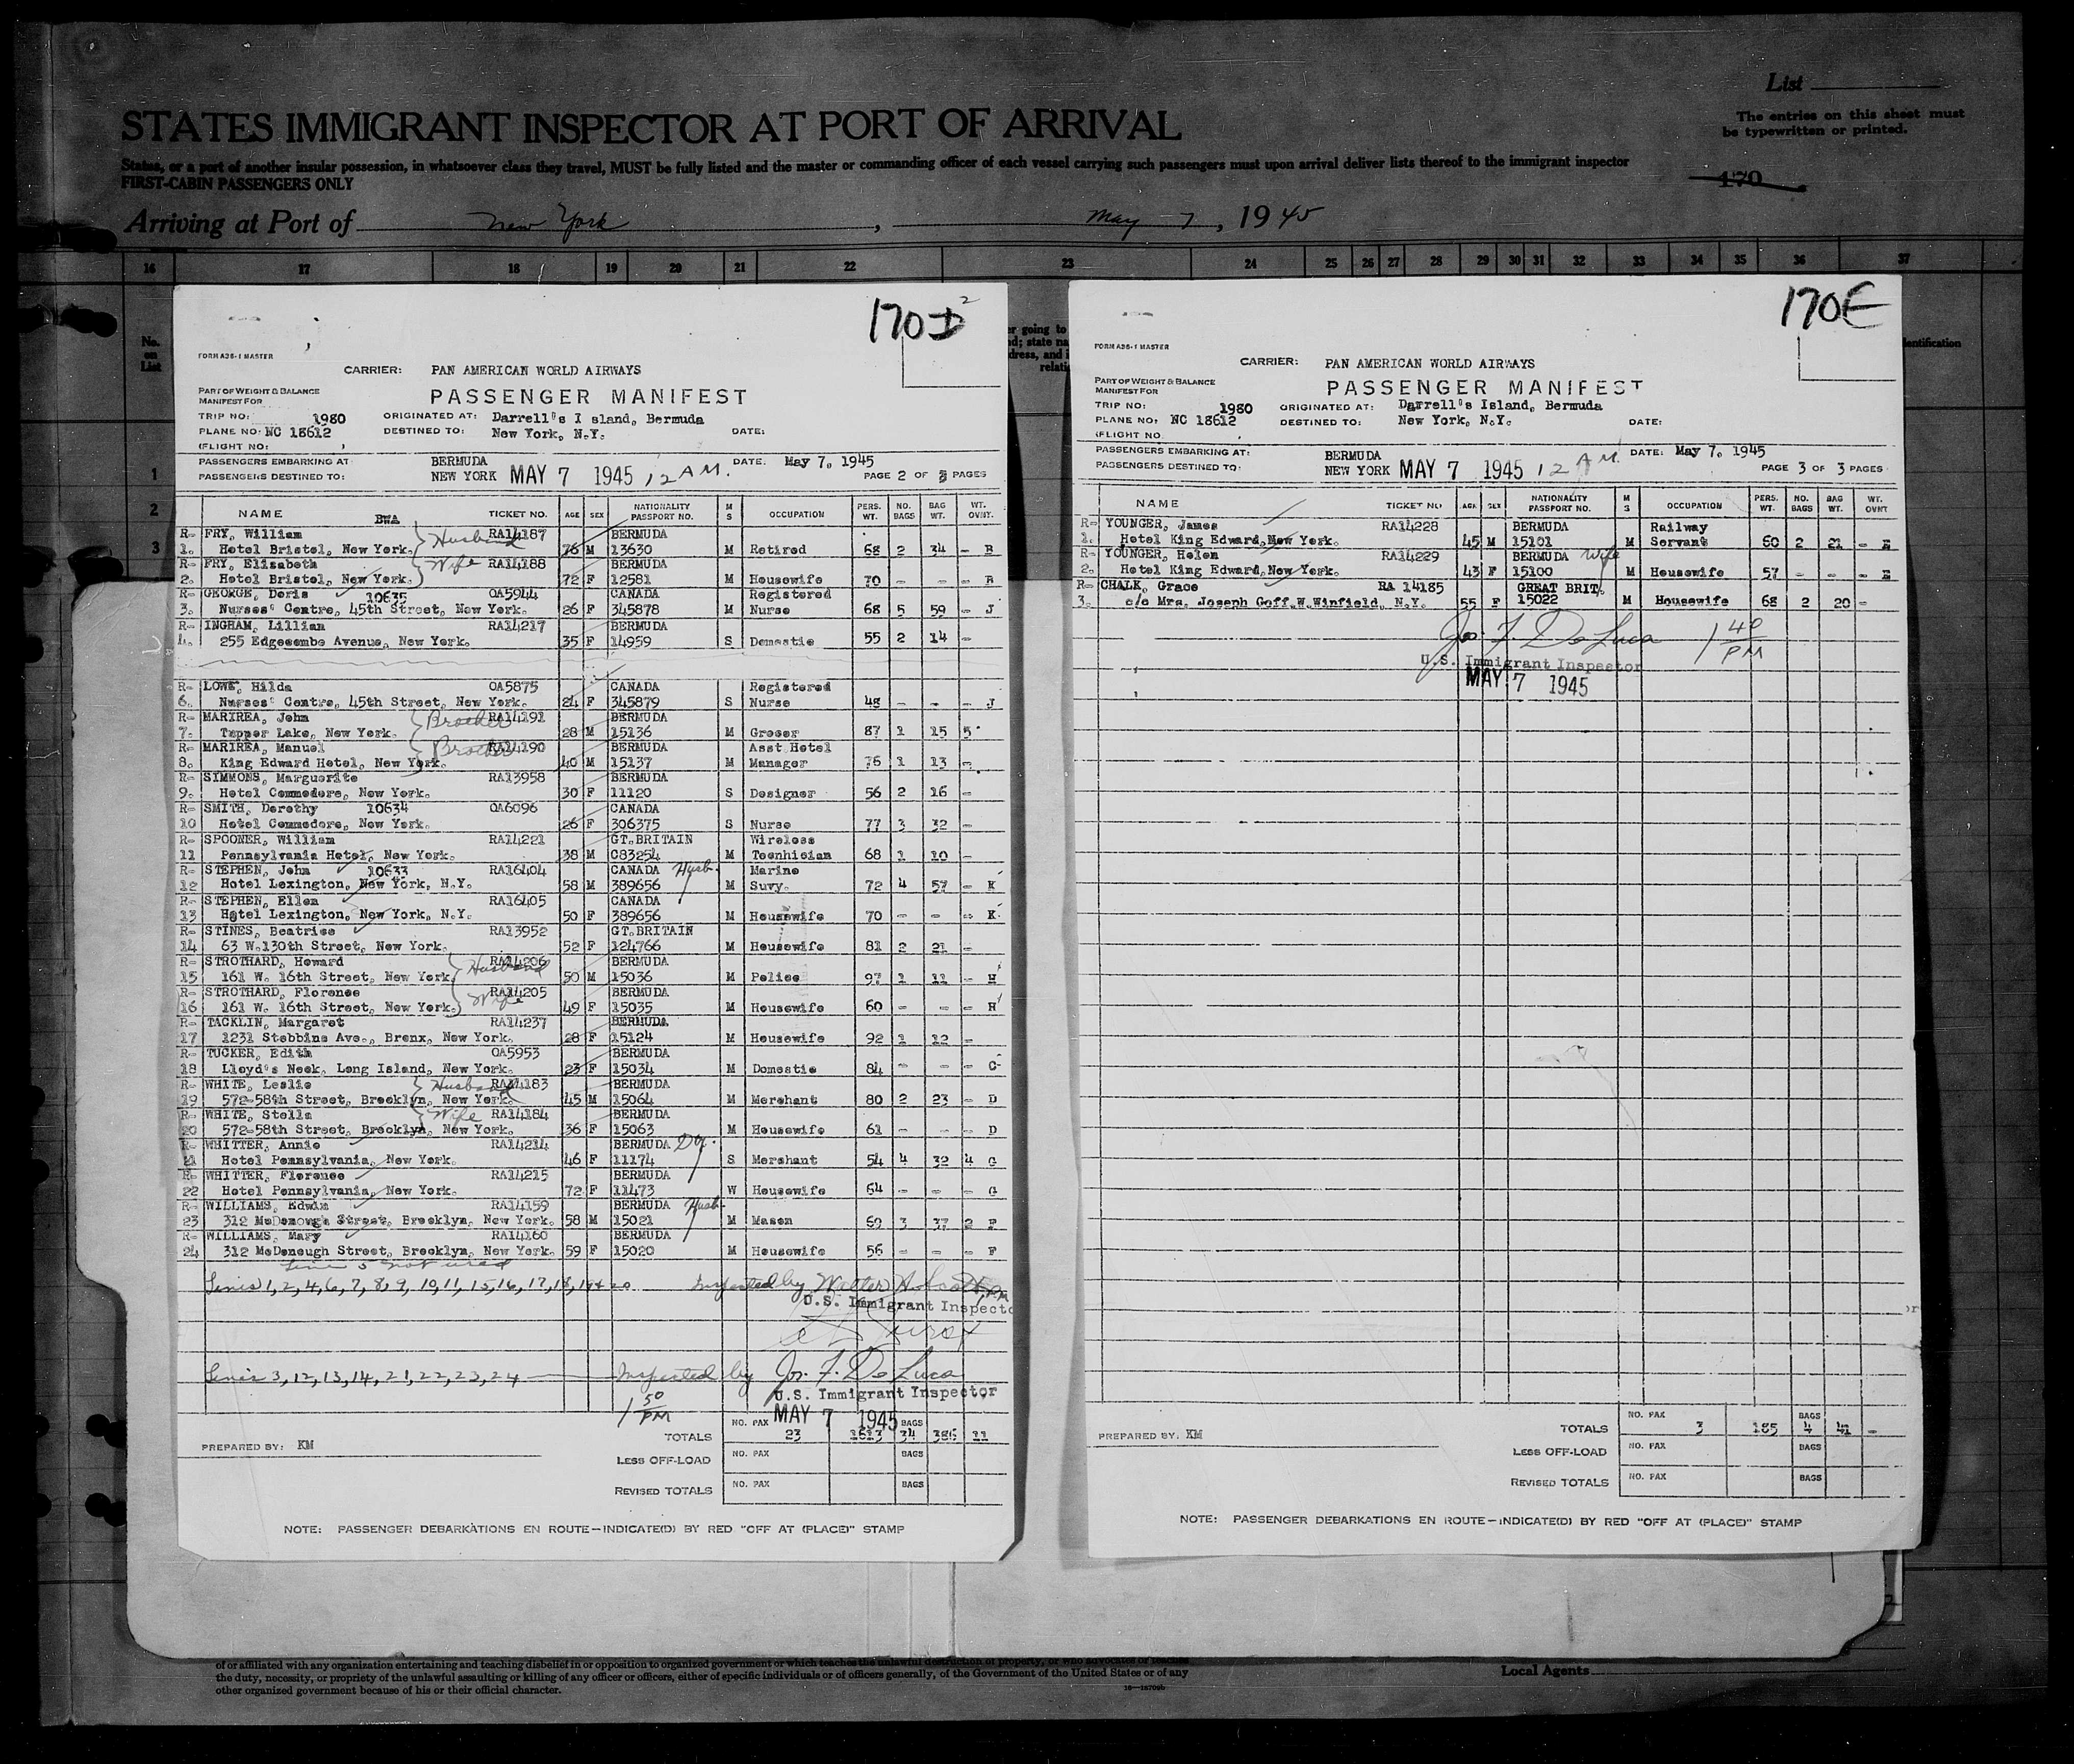 List
STATES IMMIGRANT INSPECTOR AT PORT OF ARRIVAL
The entries on this sheet must
be typewritten or printed.
States, or a port of another insular possession, in whatsoever class they travel, MUST be fully listed and the master or commanding officer of each vessel carrying such passengers must upon arrival deliver lists thereof to the immigrant inspector
FIRST-CABIN PASSENGERS ONLY
170
Arriving at Port of New York, May 7, 1945
16 17 18 19 20 21 22 23 24 25 26 27 28 29 30 31 32 33 34 35 36 37
No. on List
1
2
3
170D 2
FORM A36-1 MASTER
CARRIER: PAN AMERICAN WORLD AIRWAYS
PART OF WEIGHT & BALANCE
MANIFEST FOR
PASSENGER MANIFEST
TRIP NO: 1980 ORIGINATED AT: Darrell's I sland, Bermuda
PLANE NO: NC 18612 DESTINED TO: New York, N.Y. DATE:
(FLIGHT NO:
PASSENGERS EMBARKING AT: BERMUDA DATE: May 7, 1945
PASSENGERS DESTINED TO: NEW YORK MAY 7 1945 12 AM. PAGE 2 OF 3 PAGES
NAME BWA TICKET NO. AGE SEX NATIONALITY PASSPORT NO. M S OCCUPATION PERS. WT. NO. BAGS BAG WT. WT. OVWT.
R- FRY, William RA14187 BERMUDA
1. Hotel Bristol, New York. Husband 76 M 13630 M Retired 68 2 34 - B
R- FRY, Elizabeth Wife RA14188 BERMUDA
2. Hotel Bristol, New York. 72 F 12581 M Housewife 70 - - - B
R- GEORGE, Doris 10635 OA5944 CANADA Registered
3. Nurses' Centre, 45th Street, New York. 26 F 345878 M Nurse 68 5 59 - J
R- INGHAM, Lillian RA14217 BERMUDA
4. 255 Edgecombe Avenue, New York. 35 F 14959 S Domestic 55 2 14 -
R- LOWE, Hilda OA5875 CANADA Registered
6. Nurses' Centre, 45th Street, New York. 24 F 345879 S Nurse 48 - - - J
R- MARIREA, John Brother RA14191 BERMUDA
7. Tupper Lake, New York. 28 M 15136 M Grocer 87 1 15 5
R- MARIREA, Manuel Brother RA14190 BERMUDA Asst Hotel
8. King Edward Hotel, New York. 40 M 15137 M Manager 76 1 13 -
R- SIMMONS, Marguerite RA13958 BERMUDA
9. Hotel Commodore, New York. 30 F 11120 S Designer 56 2 16 -
R- SMITH, Dorothy 10634 OA6096 CANADA
10 Hotel Commodore, New York. 26 F 306375 S Nurse 77 3 32 -
R- SPOONER, William RA14221 GT.BRITAIN Wireless
11 Pennsylvania Hotel, New York. 38 M C83254 M Teenhician 68 1 10 -
R- STEPHEN, John 10633 RA16404 CANADA Husb. Marine
12 Hotel Lexington, New York, N.Y. 58 M 389656 M Suvy. 72 4 57 - K
R- STEPHEN, Ellen RA16405 CANADA
13 Hotel Lexington, New York, N.Y. 50 F 389656 M Housewife 70 - - - K
R- STINES, Beatrice RA13952 GT.BRITAIN
14 63 W.130th Street, New York. 52 F 124766 M Housewife 81 2 21 -
R- STROTHARD, Howard RA14206 BERMUDA
15 161 W. 16th Street, New York. Husband 50 M 15036 M Police 97 1 11 - H
R- STROTHARD, Florence Wife RA14205 BERMUDA
16 161 W. 16th Street, New York. 49 F 15035 M Housewife 60 - - - H
R- TACKLIN, Margaret RA14237 BERMUDA
17 1231 Stebbins Ave., Bronx, New York. 28 F 15124 M Housewife 92 1 12 -
R- TUCKER, Edith OA5953 BERMUDA
18 Lloyd's Neck, Long Island, New York. 23 F 15034 M Domestic 84 - - - C
R- WHITE, Leslie Husband RA14183 BERMUDA
19 572-58th Street, Brooklyn, New York. 45 M 15064 M Merchant 80 2 23 - D
R- WHITE, Stella Wife RA14184 BERMUDA
20 572-58th Street, Brooklyn, New York. 36 F 15063 M Housewife 61 - - - D
R- WHITTER, Annie RA14214 BERMUDA
21 Hotel Pennsylvania, New York. 46 F 11174 S Merchant 54 4 32 4 G
R- WHITTER, Florence RA14215 BERMUDA
22 Hotel Pennsylvania, New York. 72 F 11473 W Housewife 64 - - - G
R- WILLIAMS, Edwin RA14159 BERMUDA Husb.
23 312 McDonough Street, Brooklyn, New York. 58 M 15021 M Mason 69 3 37 2 F
R- WILLIAMS, Mary RA14160 BERMUDA
24 312 McDonough Street, Brooklyn, New York. 59 F 15020 M Housewife 56 - - - F
Line 5 not used
Lines 1, 2, 4, 6, 7, 8, 9, 10, 11, 15, 16, 17, 18, 19 & 20 Inspected by Walter A. Scott
U.S. Immigrant Inspecto
Lines 3, 12, 13, 14, 21, 22, 23, 24 Inspected by Jos. F. De Luca
U.S. Immigrant Inspector
1 50 PM MAY 7 1945
TOTALS NO. PAX 23 1613 BAGS 34 386 11
PREPARED BY: KM
LESS OFF-LOAD NO. PAX BAGS
REVISED TOTALS NO. PAX BAGS
NOTE: PASSENGER DEBARKATIONS EN ROUTE—INDICATE(D) BY RED "OFF AT (PLACE)" STAMP
er going to
nd; state na
dress, and i
relati
entification
170E
FORM A36-1 MASTER
CARRIER: PAN AMERICAN WORLD AIRWAYS
PART OF WEIGHT & BALANCE
MANIFEST FOR
PASSENGER MANIFEST
TRIP NO: 1980 ORIGINATED AT: Darrell's Island, Bermuda
PLANE NO: NC 18612 DESTINED TO: New York, N.Y. DATE:
(FLIGHT NO.
PASSENGERS EMBARKING AT: BERMUDA DATE: May 7, 1945
PASSENGERS DESTINED TO: NEW YORK MAY 7 1945 12 A M. PAGE 3 OF 3 PAGES
NAME TICKET NO. AGE SEX NATIONALITY PASSPORT NO. M S OCCUPATION PERS. WT. NO. BAGS BAG WT. WT. OVWT
R- YOUNGER, James RA14228 BERMUDA Railway
1. Hotel King Edward, New York. 45 M 15101 M Servant 60 2 21 - E
R- YOUNGER, Helen RA14229 BERMUDA Wife
2. Hotel King Edward, New York. 43 F 15100 M Housewife 57 - - - E
R- CHALK, Grace RA 14185 GREAT BRIT.
3. c/o Mrs. Joseph Goff, W.Winfield, N.Y. 55 F 15022 M Housewife 68 2 20 -
Jos. F. De Luca 1 40 PM
U.S. Immigrant Inspector
MAY 7 1945
TOTALS NO. PAX 3 185 BAGS 4 41 -
PREPARED BY: KM
LESS OFF-LOAD NO. PAX BAGS
REVISED TOTALS NO. PAX BAGS
NOTE: PASSENGER DEBARKATIONS EN ROUTE—INDICATE(D) BY RED "OFF AT (PLACE)" STAMP
of or affiliated with any organization entertaining and teaching disbelief in or opposition to organized government or which teaches the unlawful destruction of property, or who advocates or teaches
the duty, necessity, or propriety of the unlawful assaulting or killing of any officer or officers, either of specific individuals or of officers generally, of the Government of the United States or of any
other organized government because of his or their official character.
Local Agents